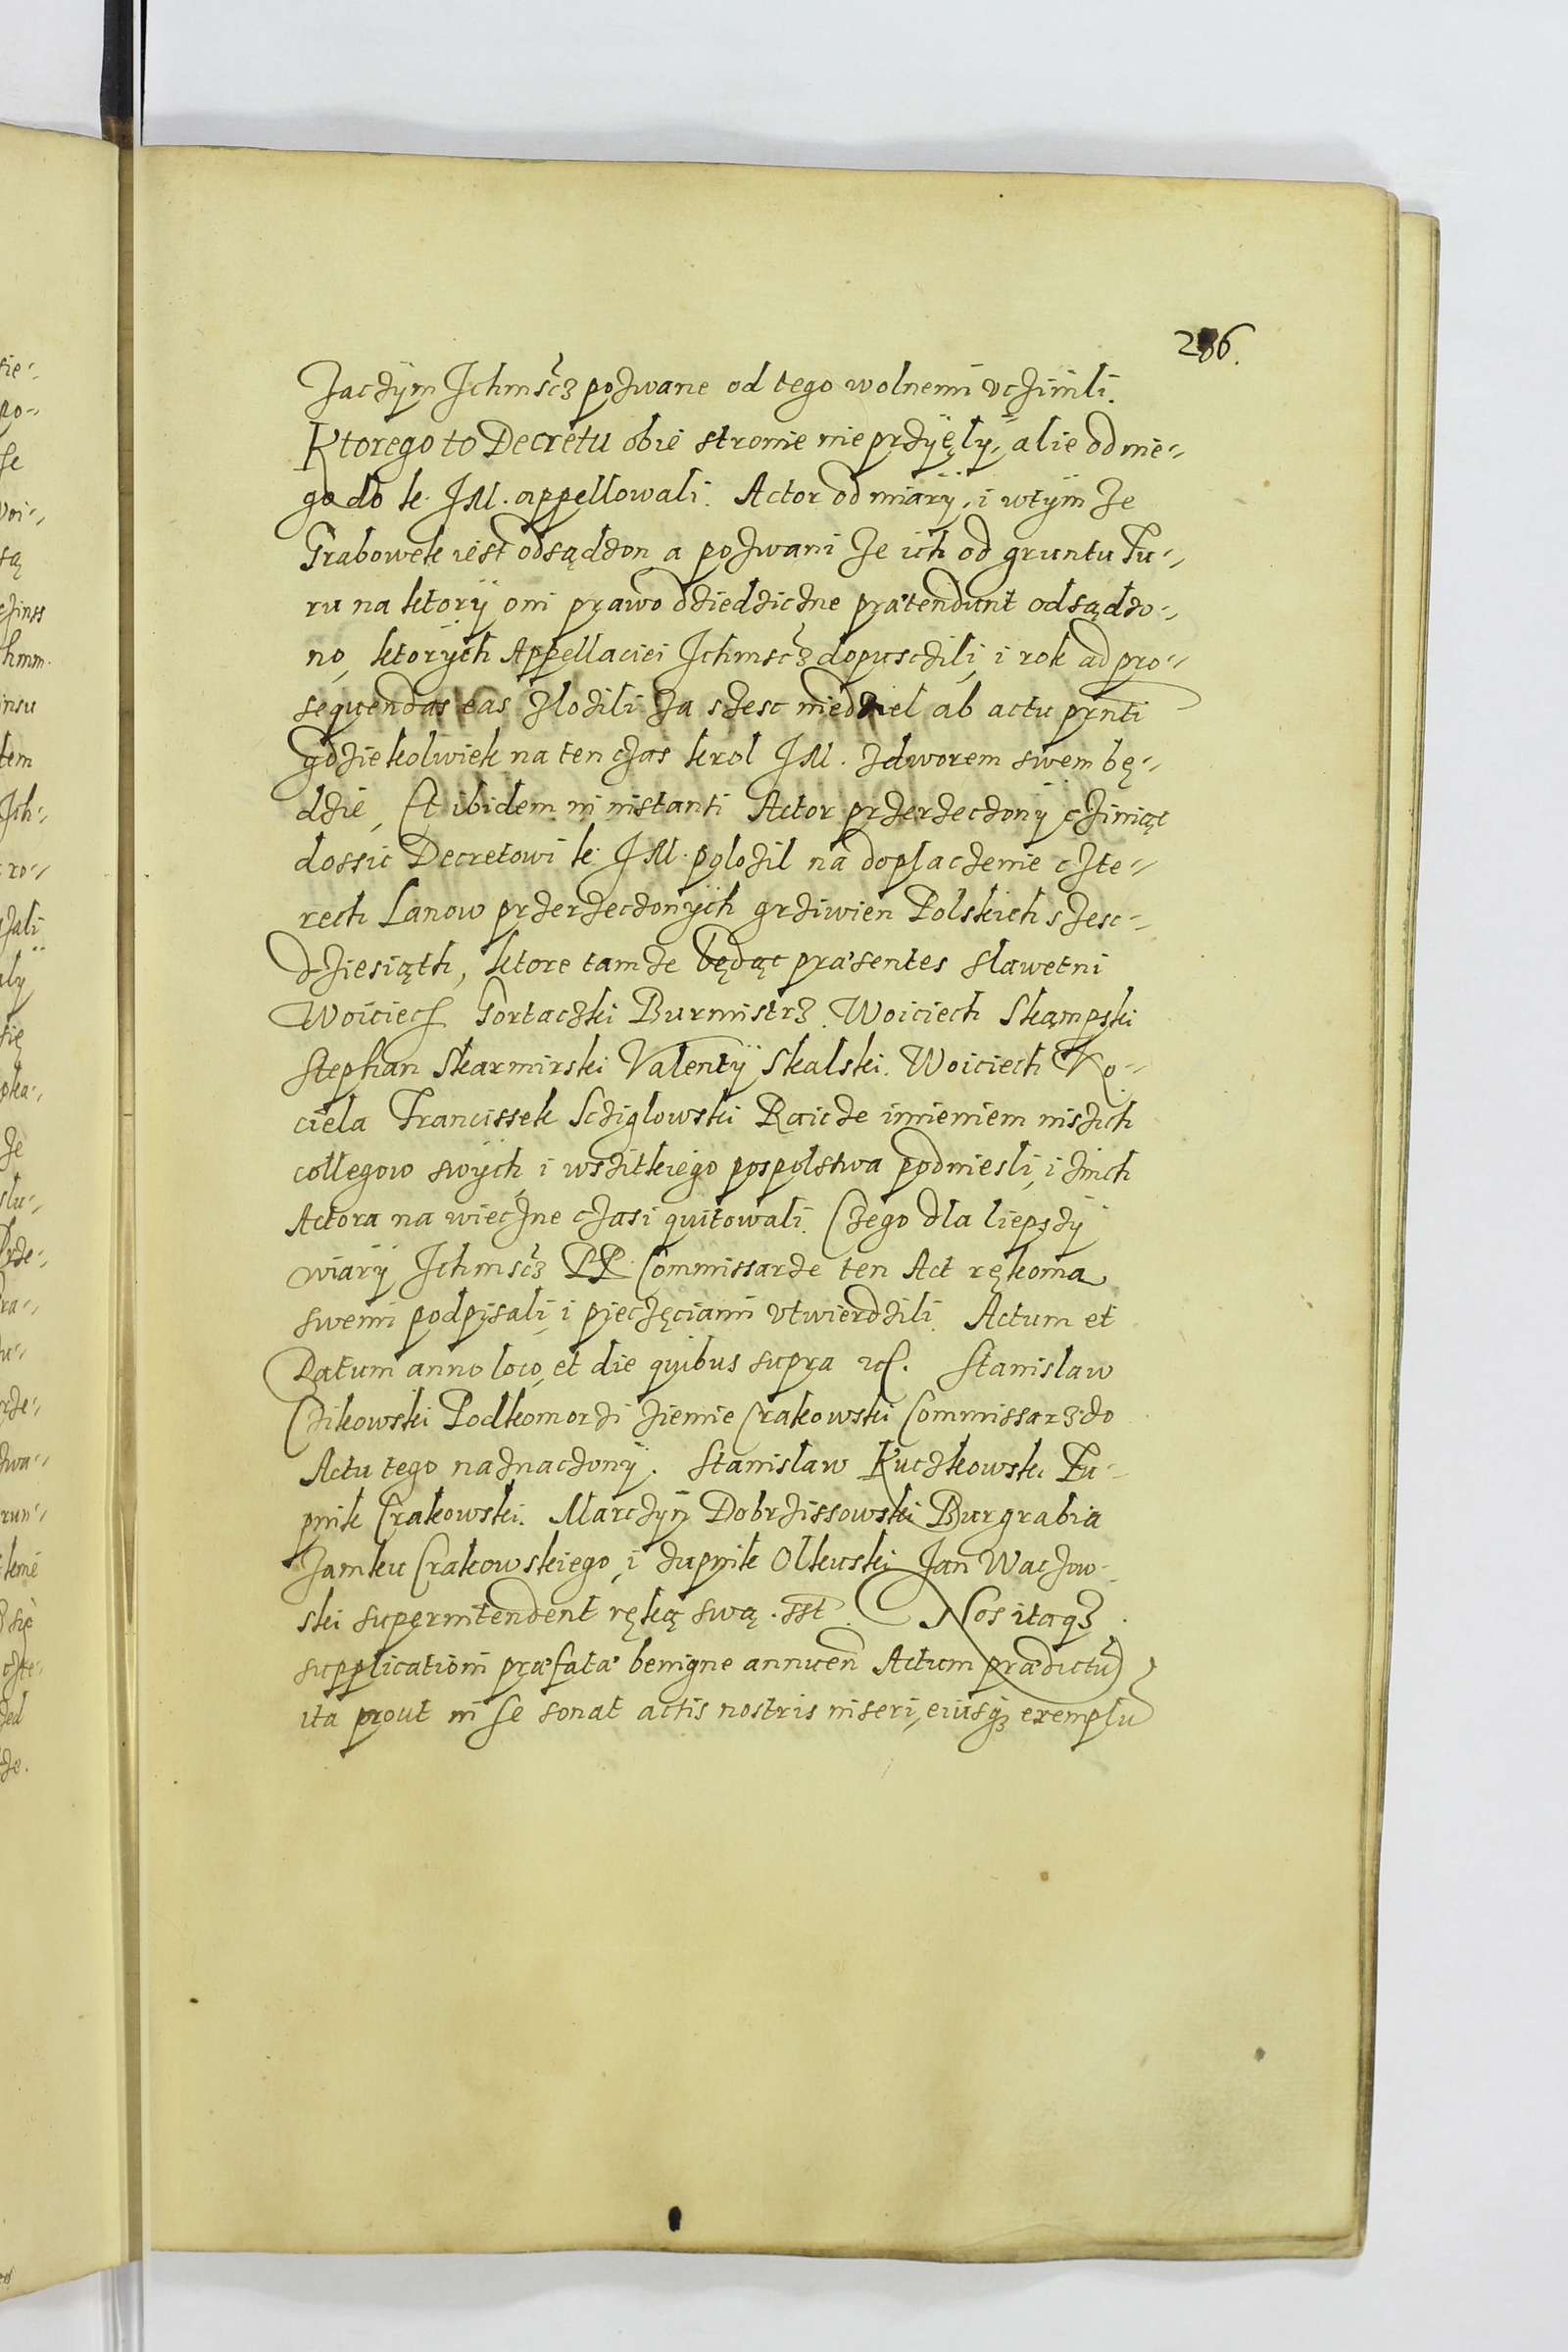 286.
Zaczÿm Ichmścz pozwane od tego wolnemi uczinili.
Ktorego to Decretu obie stronie nie przÿięlÿ, alie od nie-
go do k. JM. appellowali. Actor od miarÿ, i wtÿm ze
Grabowek iest odsądzon a pozwani ze ich od gruntu Zu-
ru na ktorÿ oni prawo dziedziczne prætendunt odsądzo-
no, ktorÿch Appellaciei Ichmscz dopusczili, i rok ad pro-
sequendas eas zlozili za szesc niedziel ab actu prnti
gdziekolwiek na ten czas krol JM. zdworem swem bę-
dzie, Et ibidem in instanti Actor przerzeczonÿ cziniąc
dossic Decretowi k. JM. polozil na doplaczenie czte-
rech Lanow przerzeczonÿch grziwien Polskich szesc-
dziesiąth, ktore tamze będąc præsentes slawetni
Woiciech Gortaczki Burmistrz. Woiciech Skąmpski
Stephan Skarmirski Valentÿ Skalski. Woiciech Ko-
ciela Francissek Scziglowski Raicze imieniem inszich
collegow swÿch, i wszitkiego pospolstwa podniesli, i zinch
Actora na wieczne czasi quitowali. Czego dla liepszÿ
wiarÿ Ichmścz PP. Commissarze ten Act rękoma
swemi podpisali, i pieczęciami utwierdzili. Actum et
Datum anno loco, et die quibus supra etc. Stanislaw
Czikowski Podkomorzi ziemie Crakowski Commissarz do
Actu tego naznaczonÿ. Stanislaw Kuczkowski Zu-
pnik Crakowski. Marczÿn Dobrzissowski Burgrabia
Zamku Crakowskiego, i zupnik Olkuski Jan Waczow-
ski superintendent ręką swą. sst. Nos itaq3
supplicationi præfatæ benigne annuen Actum prædictũ
ita prout in se sonat actis nostris inseri, eiusq3 exemplũ